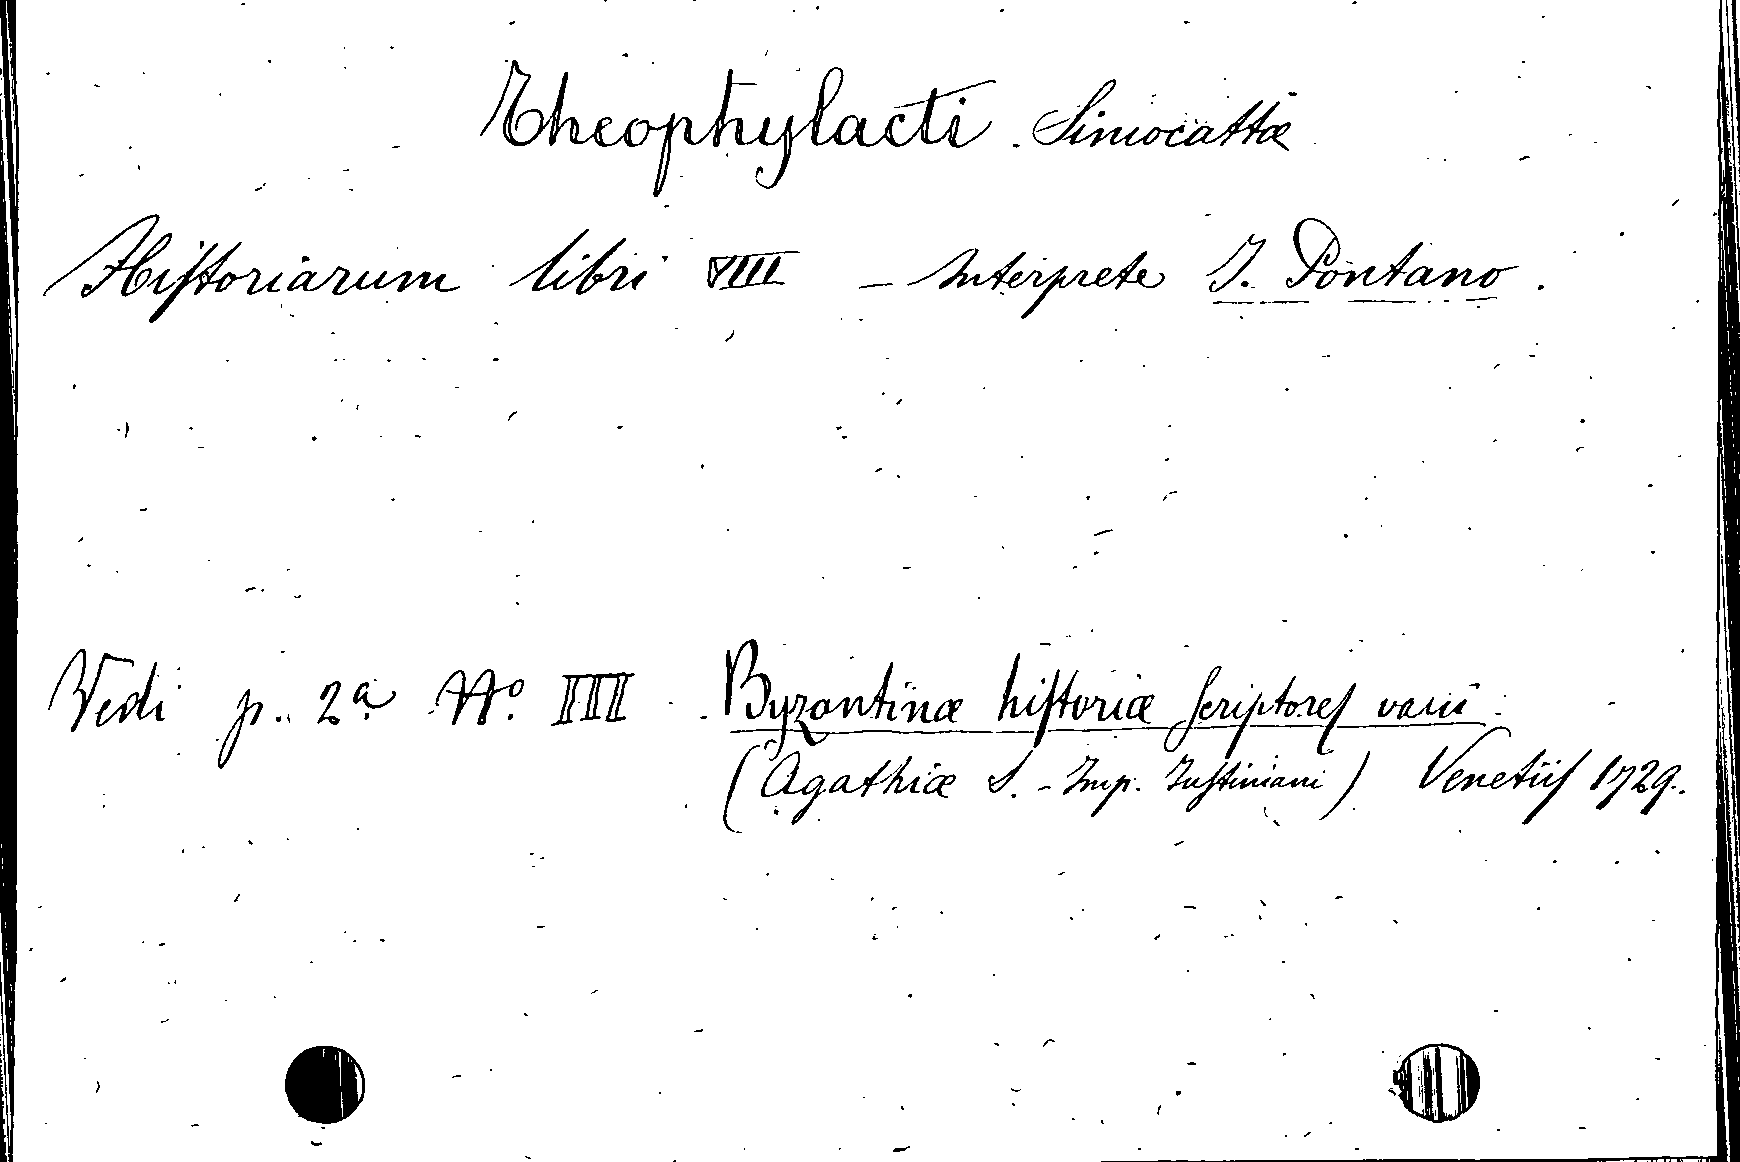 Theophylacti Simocattæ
Hiſtoriarum libri VIII – Interprete J. Pontano.
Vedi p. 2ª Nº III Byzantinæ hiſtoriæ ſcriptoreſ varii:
(Agathiæ S. - Imp. Juſtiniani) Venetiiſ 1729.